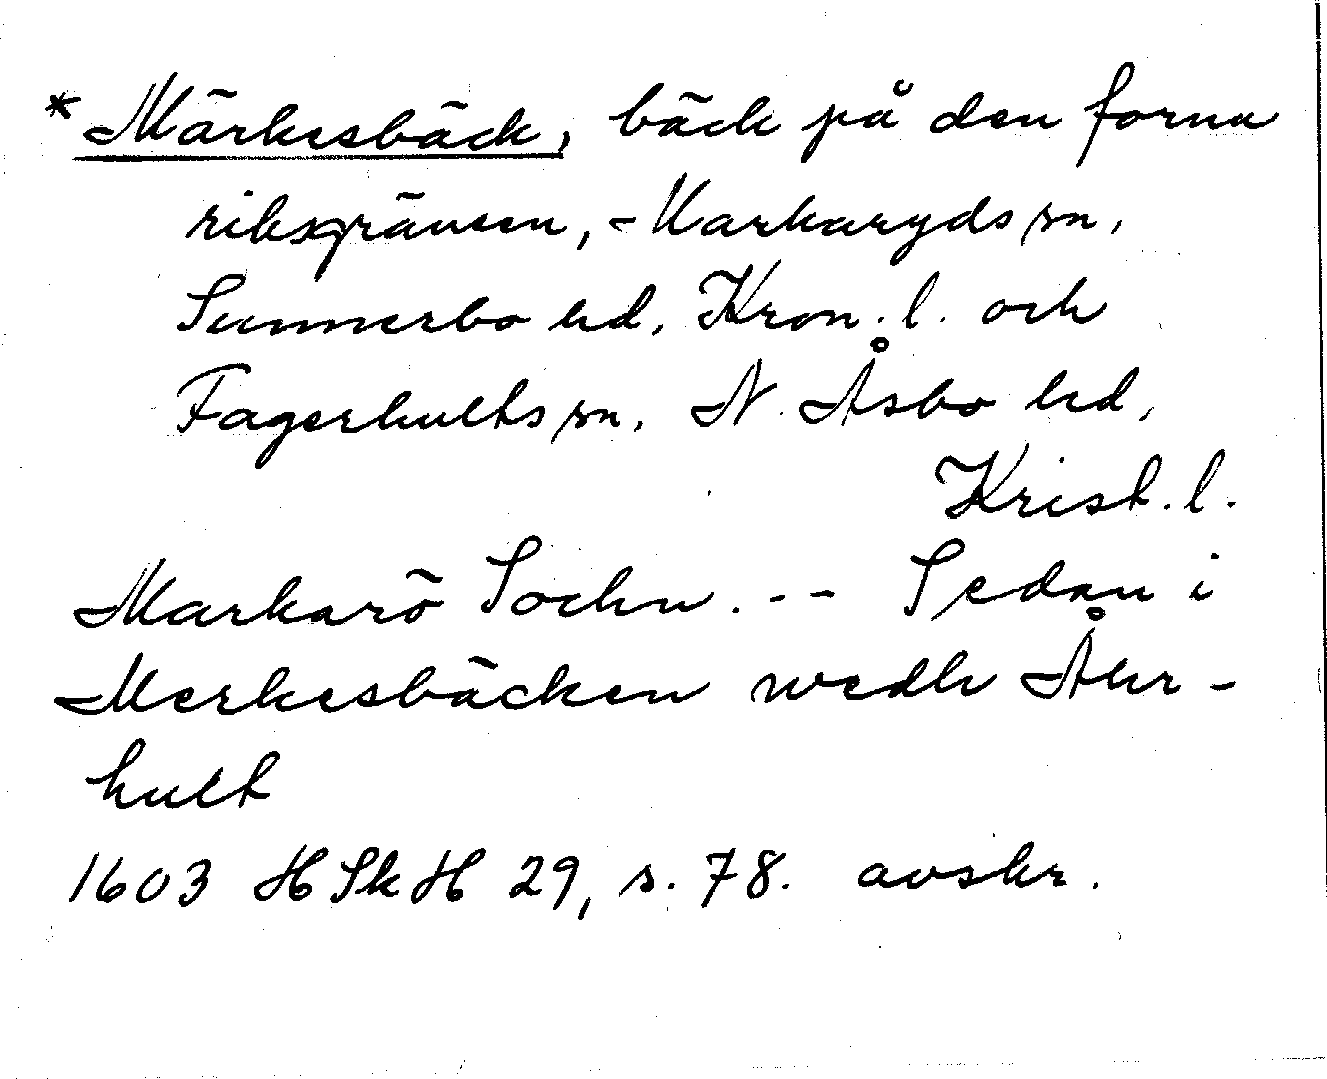 *Märkesbäck, bäck på den forna
riksgränsen, - Markaryds sn,
Sunnerbo hd, Kron. l. och
Fagerhults sn, N. Åsbo hd,
Krist. l.
Markarö Sochn. -- Sedan i
Merkesbäcken wedh Åhr-
hult
1603 HSkH 29, s. 78. avskr.